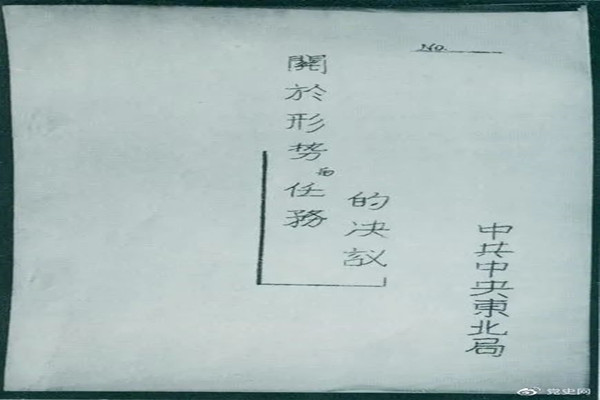 NO.
關於形势任務
的决议
中共中央東北局
党史网